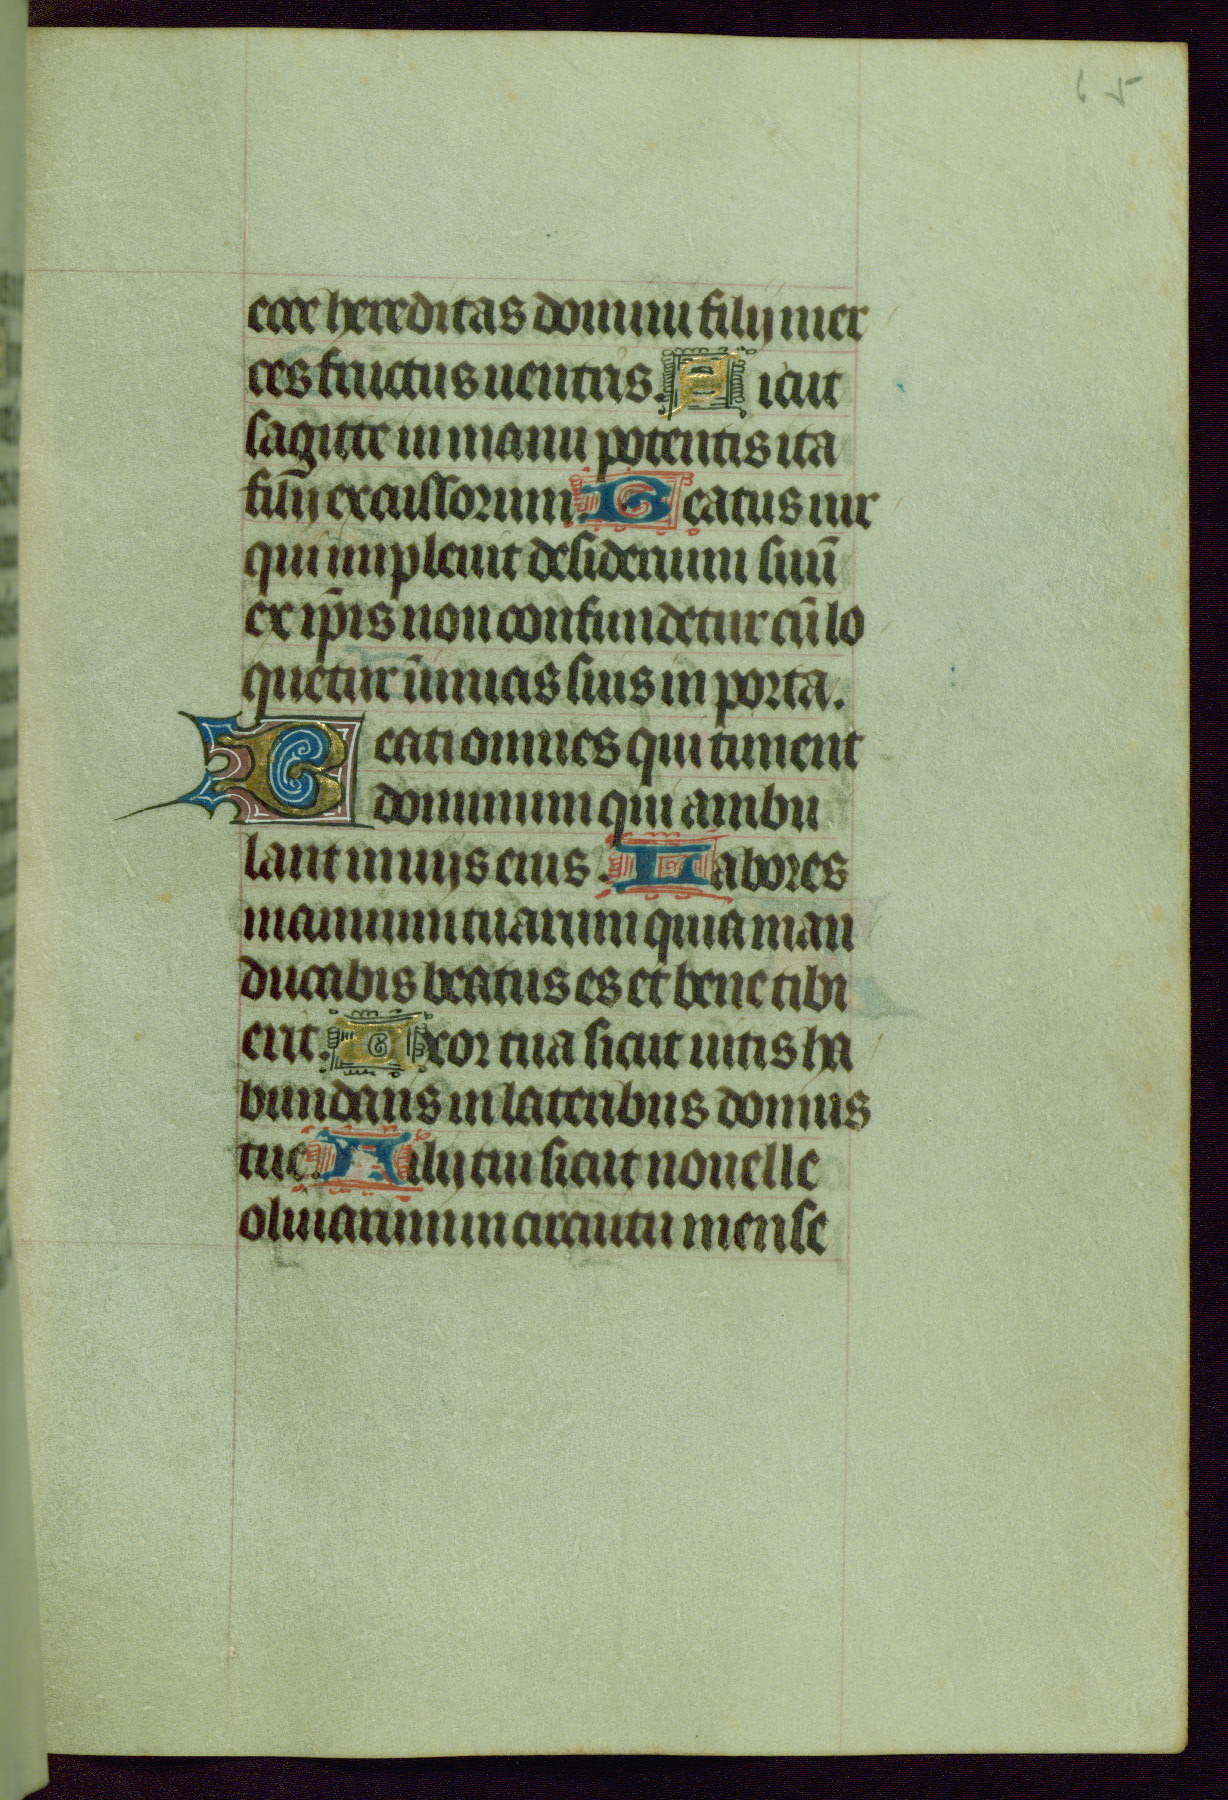 65
ecce hereditas domini filij mer
ces fructus uentris. Sicut
sagitte in manu potentis ita
filij excussorum. Beatus uir
qui impleuit desiderium suū
ex ip̄is non confundetur cū lo
quetur inimicis suis in porta.
Beati omnes qui timent
dominum qui ambu
lant in uijs eius. Labores
manuum tuarum quia man
ducabis beatus es et bene tibi
erit. Uxor tua sicut uitis ha
bundans in lateribus domus
tue. Filij tui sicut nouelle
oliuarum in circuitu mense